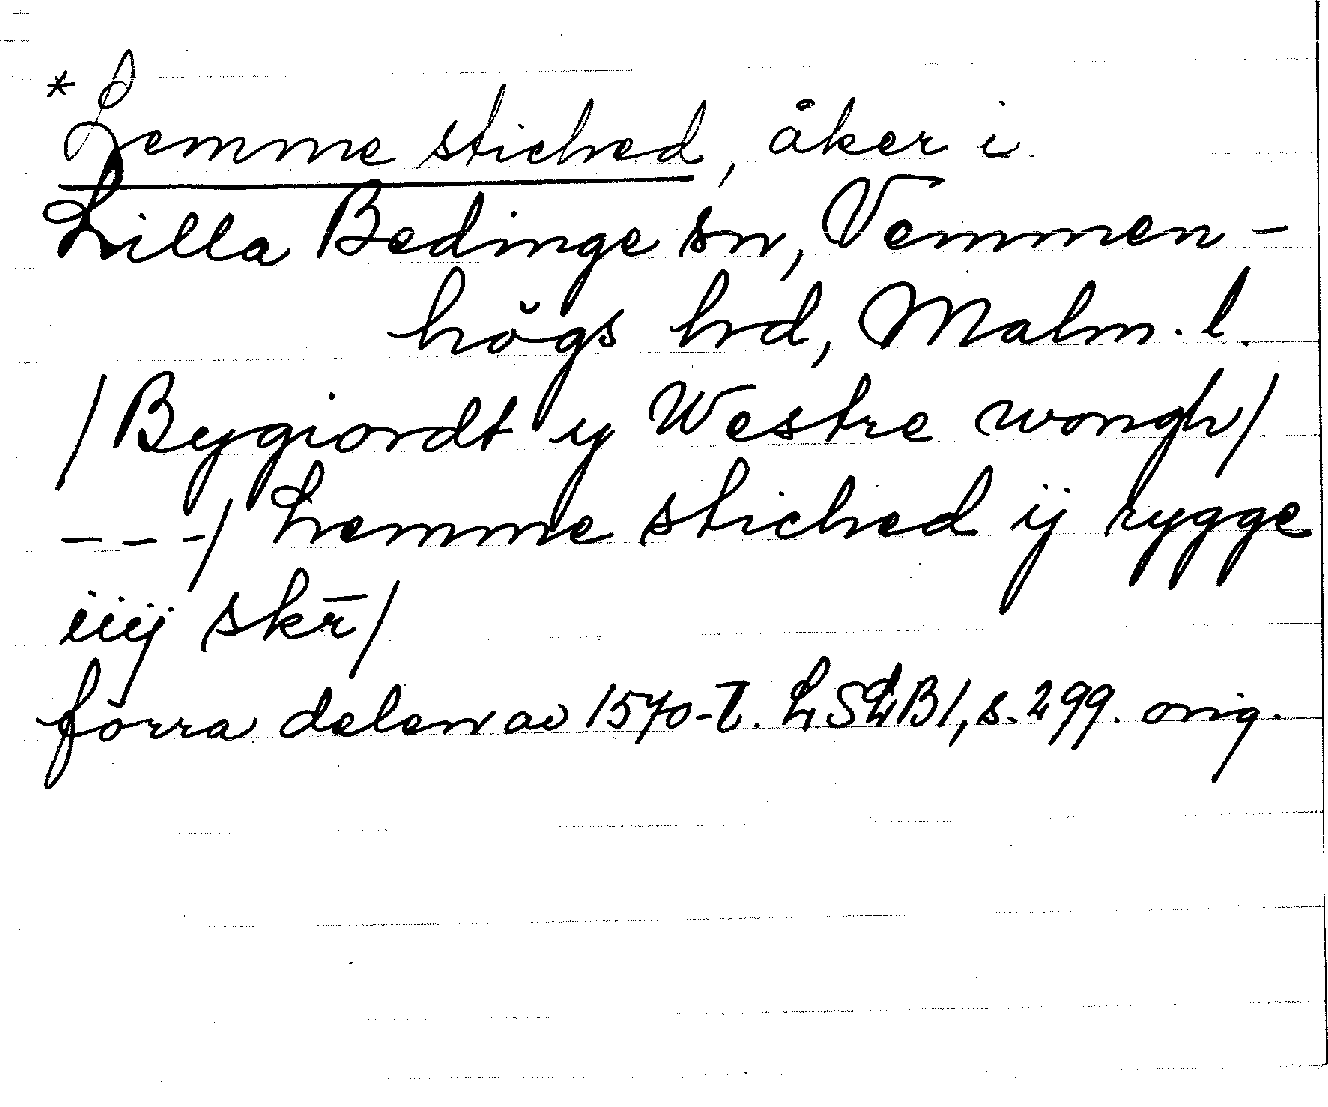 * Lemme stiched, åker i
Lilla Bedinge sn, Vemmen-
högs hrd, Malm. l.
/Bygiordt y Westre wongh/
---/ Lemme stiched ij rygge
iiij skr̄/
förra delen av 1570-t. LSLB1, s. 299. orig.